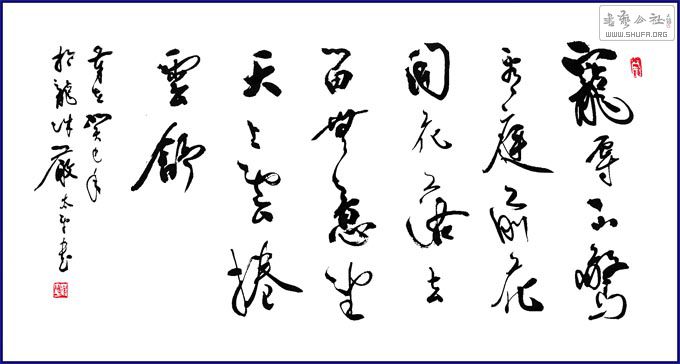 書藝公社
WWW.SHUFA.ORG
寵辱不驚
看庭前花
開花落去
留無意望
天上雲捲
雲舒
歲在癸巳年
於龍城嚴太書